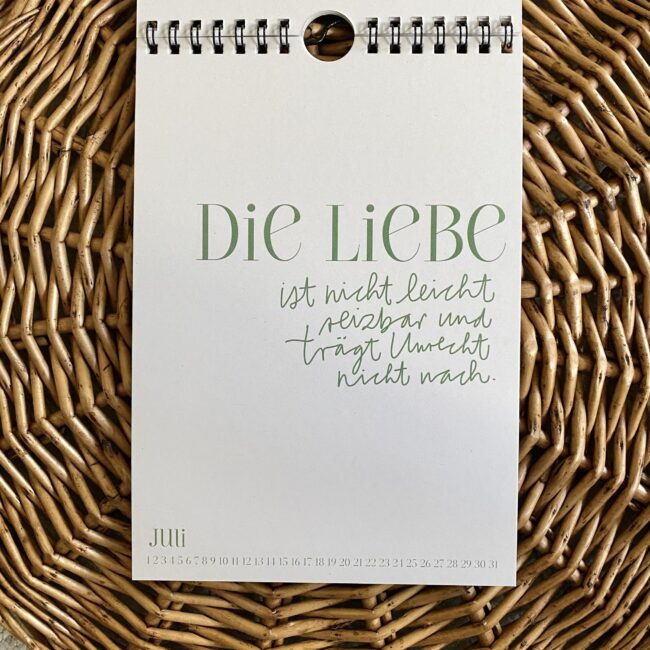 Die Liebe
ist nicht leicht
reizbar und
trägt Unrecht
nicht nach.
Juli
1 2 3 4 5 6 7 8 9 10 11 12 13 14 15 16 17 18 19 20 21 22 23 24 25 26 27 28 29 30 31